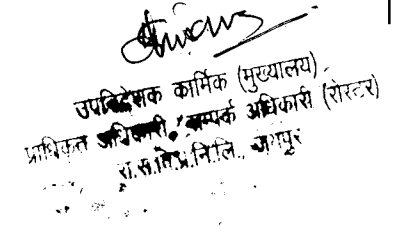 उपनिदेशक कार्मिक (मुख्यालय)
प्राधिकृत अधिकारी / सम्पर्क अधिकारी (रोस्टर)
रा.स.वि.प्र.नि.लि., जयपुर